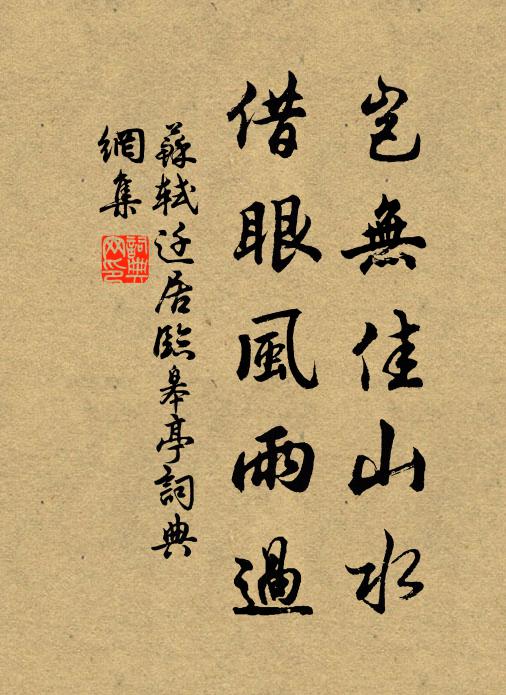 豈無佳山水
借眼風雨過
蘇軾遷居臨皋亭詞典
網集
詞典网印